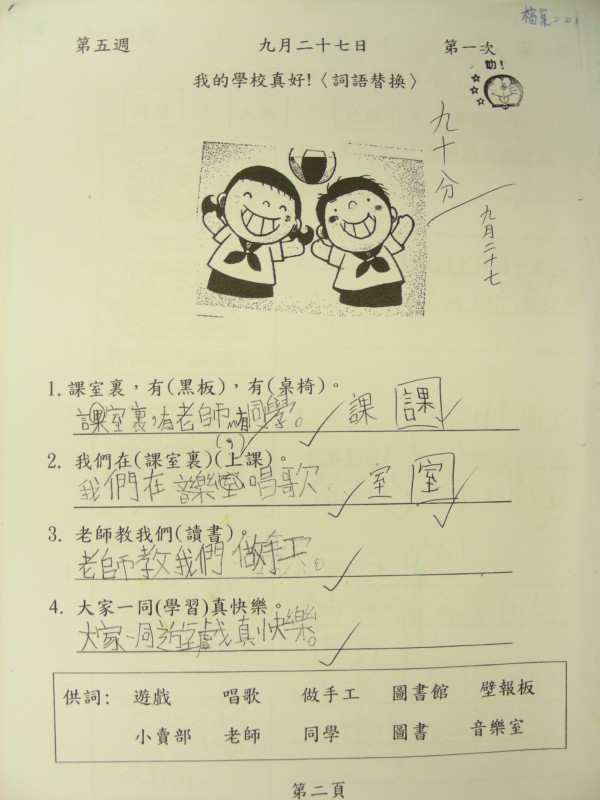 檔案:01
第五週 九月二十七日 第一次
叻!
我的學校真好!〈詞語替換〉
九十分
九月二十七
1. 課室裏,有(黑板),有(桌椅)。
課室裏,有老師,有同學。 課 課
(,)
2. 我們在(課室裏)(上課)。
我們在音樂室唱歌 室 室
3. 老師教我們(讀書)。
老師教我們做手工。
4. 大家一同(學習)真快樂。
大家一同遊戲真快樂。
供詞: 遊戲 唱歌 做手工 圖書館 壁報板
小賣部 老師 同學 圖書 音樂室
第二頁